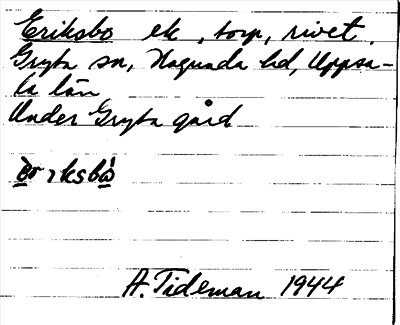 Eriksbo ek, torp, rivet.
Gryta sn, Hagunda hd, Uppsa-
la län
Under Gryta gård
A. Tideman 1944